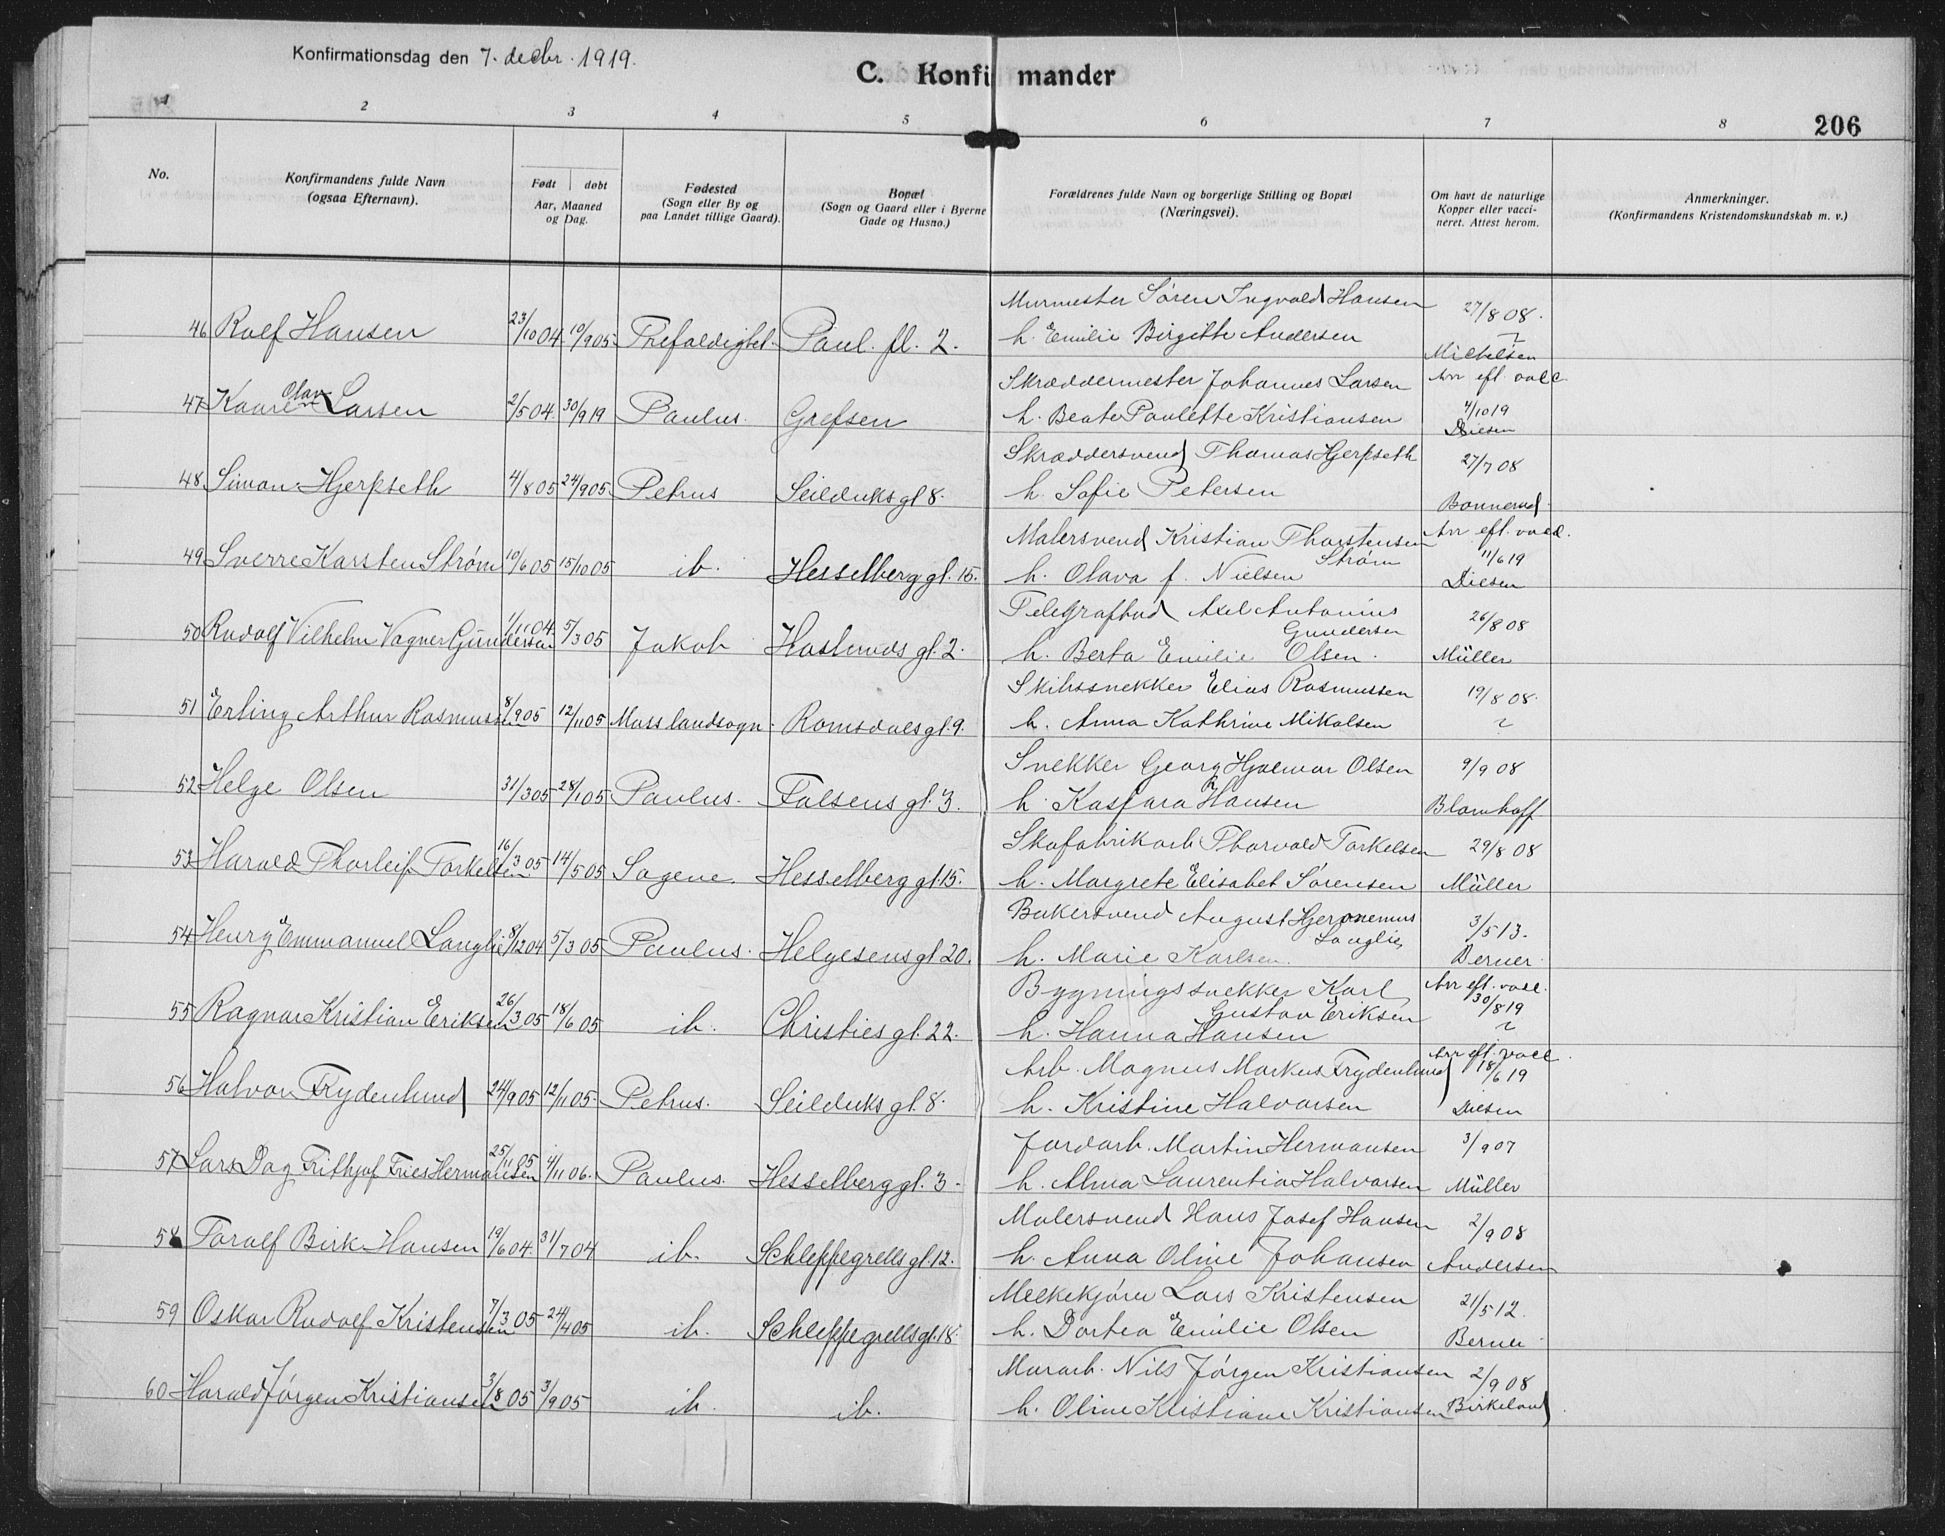 Konfirmationsdag den 7. decbr. 1919.
C. Konfirmander
206
1 2 3 4 5 6 7 8
No.
Konfirmandens fulde Navn
(ogsaa Efternavn).
Født døbt
Aar, Maaned
og Dag.
Fødested
(Sogn eller By og
paa Landet tillige Gaard).
Bopæl
(Sogn og Gaard eller i Byerne
Gade og Husno.)
Forældrenes fulde Navn og borgerlige Stilling og Bopæl
(Næringsvei).
Om havt de naturlige
Kopper eller vacci-
neret. Attest herom.
Anmerkninger.
(Konfirmandens Kristendomskundskab m. v.)
Murmester Søren Ingvald Hansen 27/8 08.
46 Rolf Hansen 23/10 04 10/9 05 Trefoldighet. Paul. pl. 2. h. Emilie Birgitte Andersen
Michelsen
Skræddermester Johannes Larsen Arr eft. vacc.
47 Kaare Olav Larsen 2/5 04 30/9 19 Paulus. Grefsen h. Beate Paulette Kristiansen 4/10 19
Diesen
Skræddersvend Thomas Hjerpseth 27/7 08
48 Simon Hjerpseth 4/8 05 24/9 05 Petrus Seilduks gt 8. h. Sofie Petersen
Bonnevad
Malersvend Kristian Thorstensen Arr eft. vacc.
Strøm 11/6 19
49 Sverre Karsten Strøm 10/6 05 15/10 05 ib. Hesselberg gt. 15. h. Olava f. Nielsen Diesen
Telegrafbud Axel Antonius
Gundersen 26/8 08
50 Rudolf Vilhelm Vagner Gundersen 1/11 04. 5/3 05 Jakob Haslunds gt. 2. h. Berta Emilie Olsen. Müller
Skibssnekker Elias Rasmussen 19/8 08.
51 Erling Arthur Rasmussen 8/9 05 12/11 05 Moss landsogn Romsdals gt. 9. h. Anna Kathrine Mikalsen
Snekker Georg Hjalmar Olsen 9/9 08
52 Helge Olsen 31/3 05 28/1 05 Paulus. Falsens gt. 3. h. Kaspara Hansen Blomhoff
Skofabrikarb Thorvald Torkelsen 29/8 08
53 Harald Thorleif Torkelsen 16/3 05 14/5 05 Sagene. Hesselberg gt. 15. h. Margrete Elisabet Sørensen Müller
Bakersvend August Hjeronemus
Langlie, 3/5 13.
54 Henry Emmanuel Langlie 8/12 04 5/3 05 Paulus. Helgesens gt 20. h. Marie Karlsen. Berner.
Bygningssnekker Karl Arr eft. vacc.
Gustav Eriksen 30/8 19
55 Ragnar Kristian Eriksen 26/3 05 18/6 05 ib. Christies gt. 22. h. Hanna Hansen
Arb. Magnus Markus Frydenlund Arr eft. vacc.
18/6 19
56 Halvor Frydenlund 24/9 05 12/11 05. Petrus. Seilduks gt. 8. h. Kristine Halvorsen Diesen
Jordarb. Martin Hermansen 3/9 07
57 Lars Dag Frithjof Fries Hermansen 25/11 05 4/11 06. Paulus. Hesselberg gt. 3. h. Alma Laurentia Halvorsen Müller
Malersvend Hans Josef Hansen 2/9 08
58 Toralf Birk Hansen 19/6 04. 31/7 04 ib. Schleppegrells gt. 12. h. Anna Oline Johansen Andersen
Melkekjører Lars Kristensen 21/5 12.
59 Oskar Rudolf Kristensen 7/3 05 24/4 05 ib. Schleppegrells gt. 18. h. Dortea Emilie Olsen Berner
Murarb. Nils Jørgen Kristiansen 2/9 08
60 Harald Jørgen Kristiansen 3/8 05 3/9 05 ib. ib. h. Oline Kristiane Kristiansen Birkeland